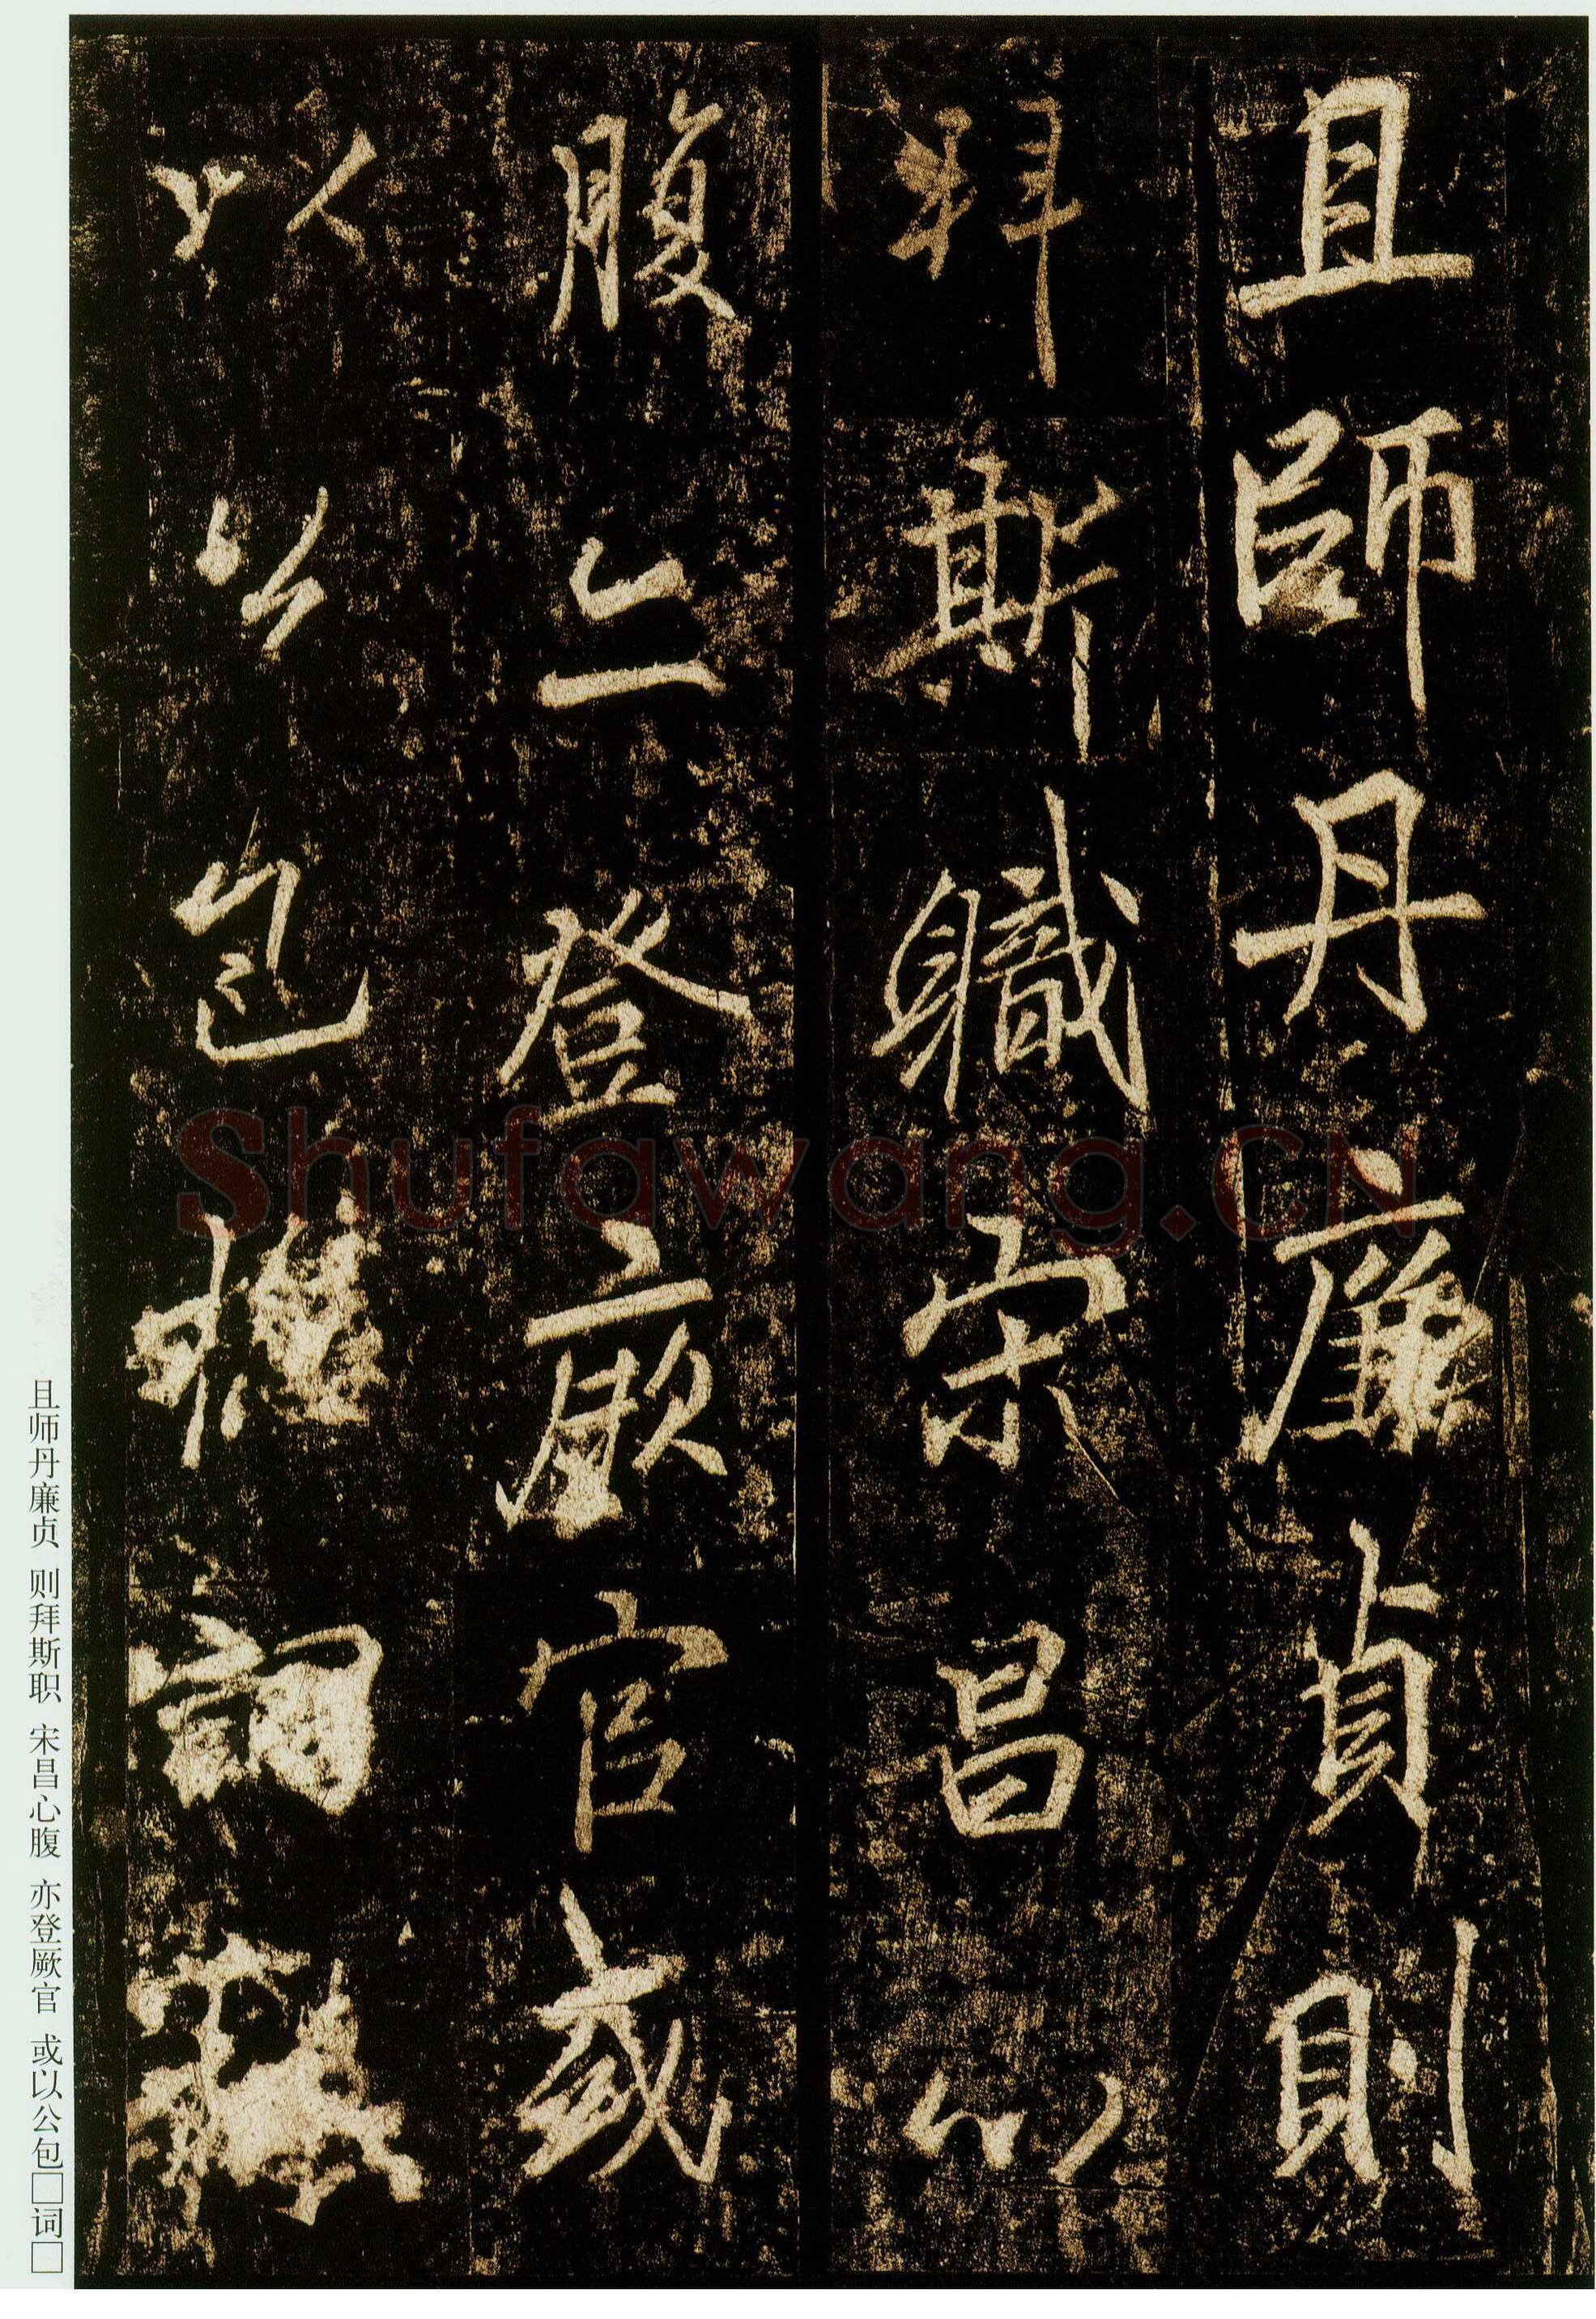 且師丹廉貞則
拜斯職宋昌心
腹亦登厥官或
以公包詞
且师丹廉贞 则拜斯职 宋昌心腹 亦登厥官 或以公包□词□
Shufawang.CN